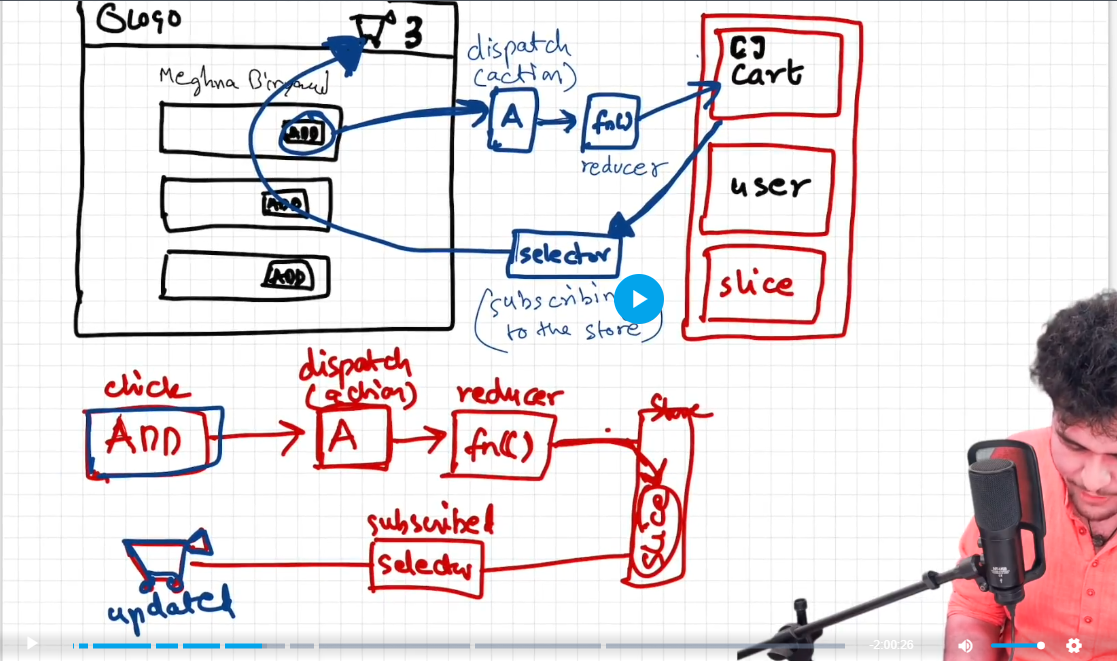 Logo
3
Meghna Biryani
ADD
ADD
ADD
dispatch
(action)
A
fn()
reducer
selector
(subscribin
to the store)
[]
cart
user
slice
click
ADD
dispatch
(action)
A
reducer
fn()
Store
slice
subscribed
selector
updated
-2:00:26